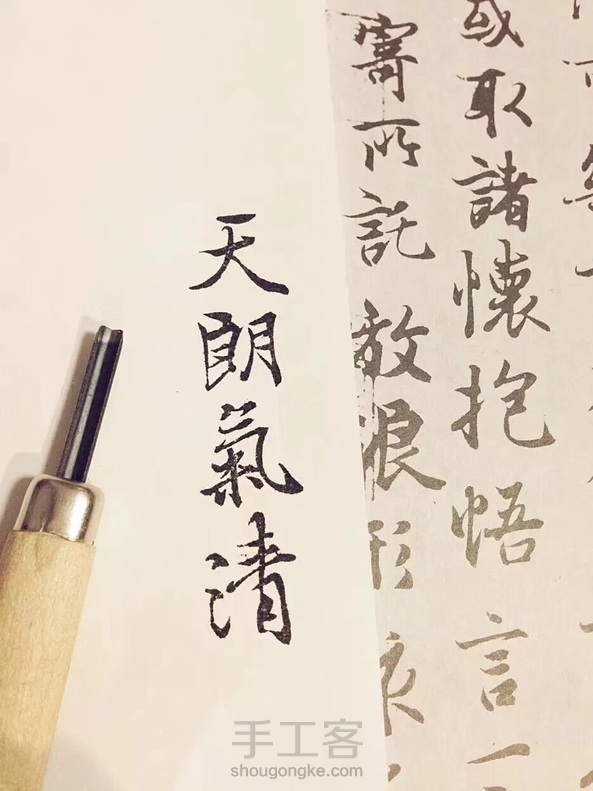 天朗氣清
或取諸懷抱悟言一
寄所託放浪形
手工客
shougongke.com